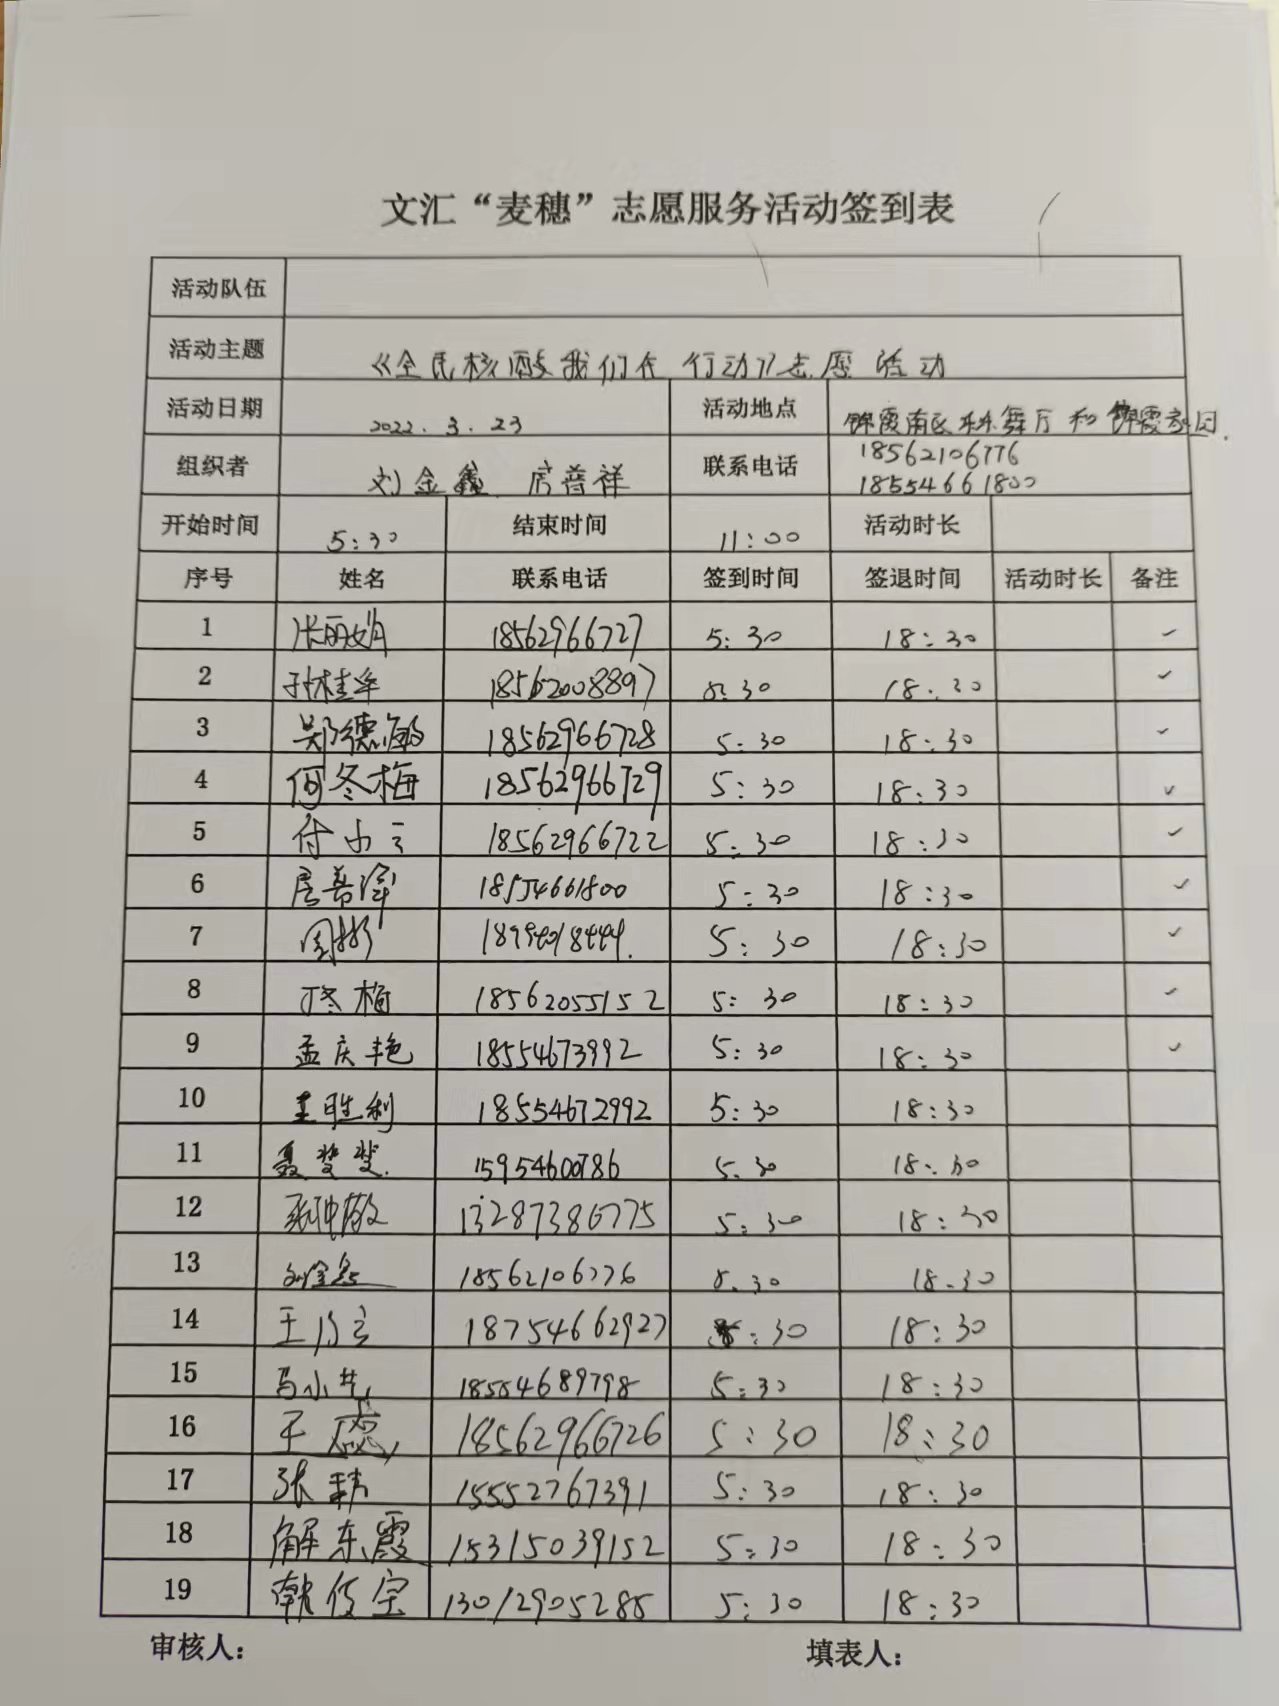 文汇“麦穗”志愿服务活动签到表
活动队伍
活动主题 《全民核酸我们在行动》志愿活动
活动日期 2022.3.23 活动地点 锦霞南区东舞厅和锦霞家园.
组织者 刘金鑫 房普祥 联系电话 18562106776
18554661800
开始时间 5:30 结束时间 11:00 活动时长
序号 姓名 联系电话 签到时间 签退时间 活动时长 备注
1 张丽娟 18562966727 5:30 18:30 ✓
2 孙桂华 18562008897 5:30 18:30 ✓
3 郑德敏 18562966728 5:30 18:30 ✓
4 何冬梅 18562966729 5:30 18:30 ✓
5 付小云 18562966722 5:30 18:30 ✓
6 18554661800 5:30 18:30 ✓
7 周彬 5:30 18:30 ✓
8 丁冬梅 18562055152 5:30 18:30 ✓
9 孟庆艳 18554673992 5:30 18:30 ✓
10 王胜利 18554672992 5:30 18:30
11 聂斐斐. 15954600786 5:30 18:30
12 13287386775 5:30 18:30
13 刘金鑫 18562106776 5:30 18:30
14 18754662927 5:30 18:30
15 马小 18554689798 5:30 18:30
16 王 18562966726 5:30 18:30
17 张精 15552767391 5:30 18:30
18 解东霞 15315039152 5:30 18:30
19 韩俊宝 13012905285 5:30 18:30
审核人: 填表人: